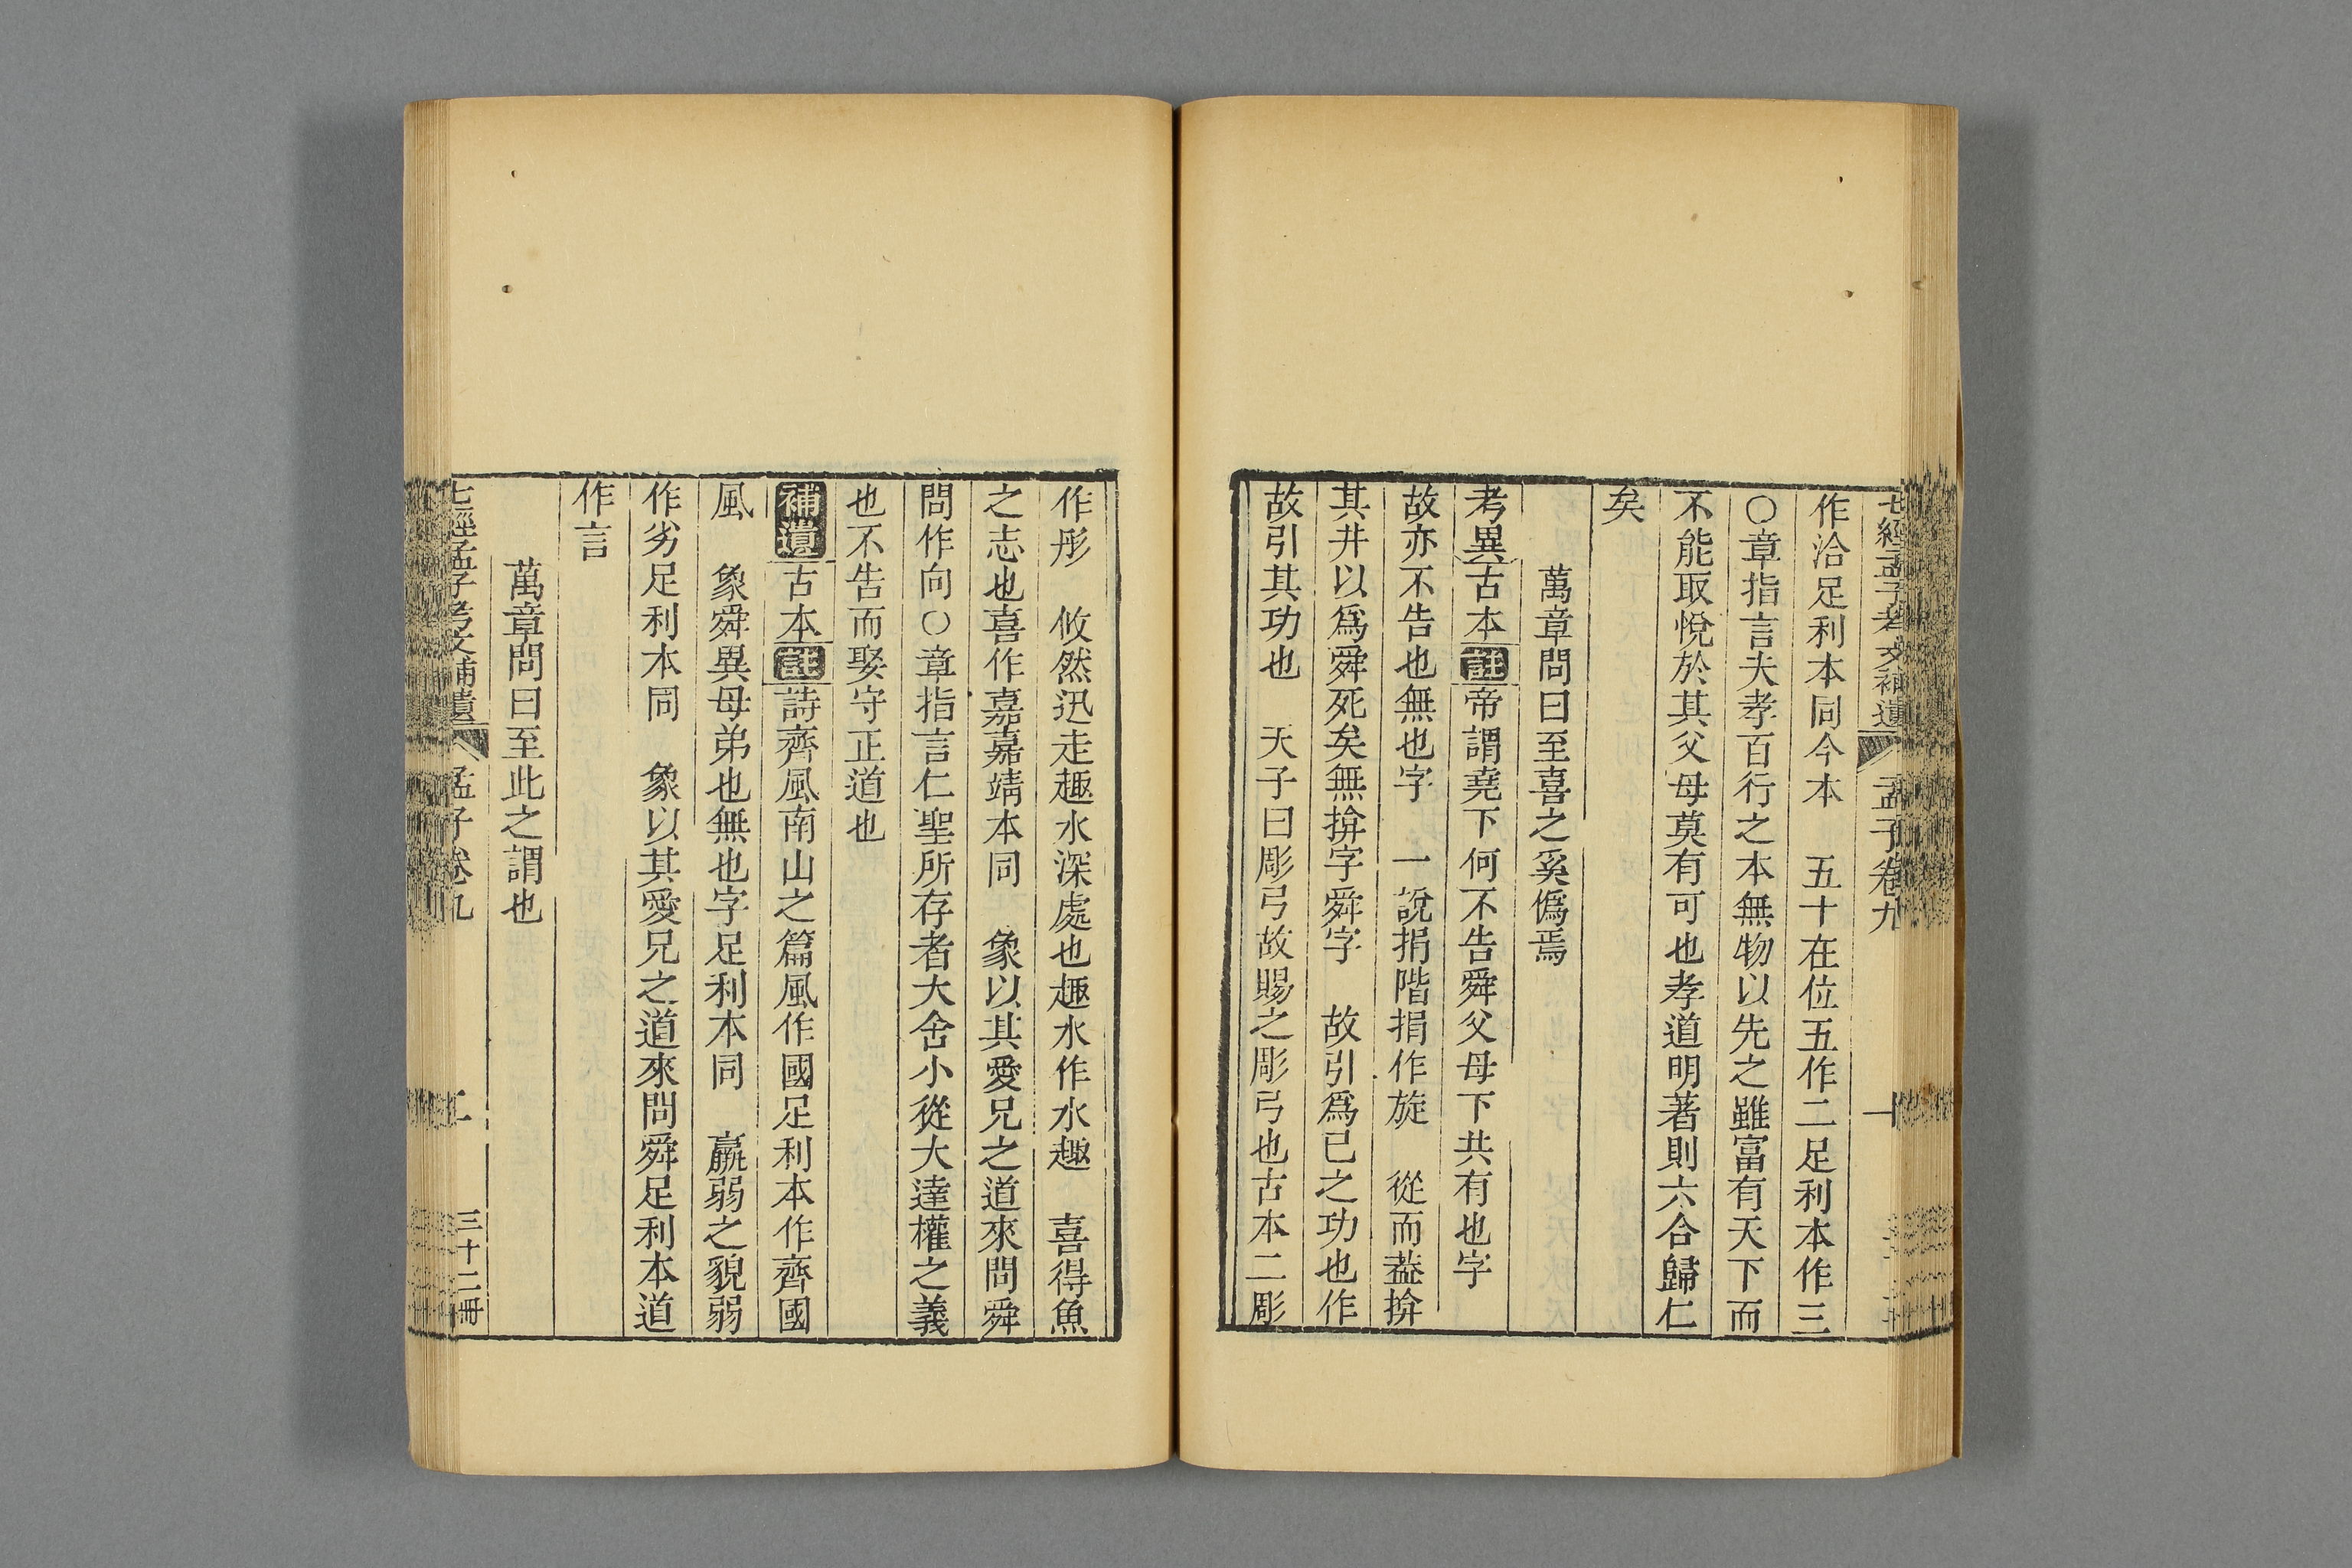 七經孟子考文補遺 孟子卷九 一
作洽足利本同今本 五十在位五作二足利本作三
○章指言夫孝百行之本無物以先之雖富有天下而
不能取悅於其父母莫有可也孝道明著則六合歸仁
矣
萬章問曰至喜之奚僞焉
考異古本註帝謂堯下何不告舜父母下共有也字
故亦不告也無也字 一說捐階捐作旋 從而葢揜
其井以爲舜死矣無揜字舜字 故引爲已之功也作
故引其功也 天子曰彫弓故賜之彫弓也古本二彫
作彤 攸然迅走趣水深處也趣水作水趣 喜得魚
之志也喜作嘉嘉靖本同 象以其愛兄之道來問舜
問作向○章指言仁聖所存者大舍小從大達權之義
也不告而娶守正道也
補遺古本註詩齊風南山之篇風作國足利本作齊國
風 象舜異母弟也無也字足利本同 羸弱之貌弱
作劣足利本同 象以其愛兄之道來問舜足利本道
作言
萬章問曰至此之謂也
七經孟子考文補遺 孟子卷九 二 三十二冊